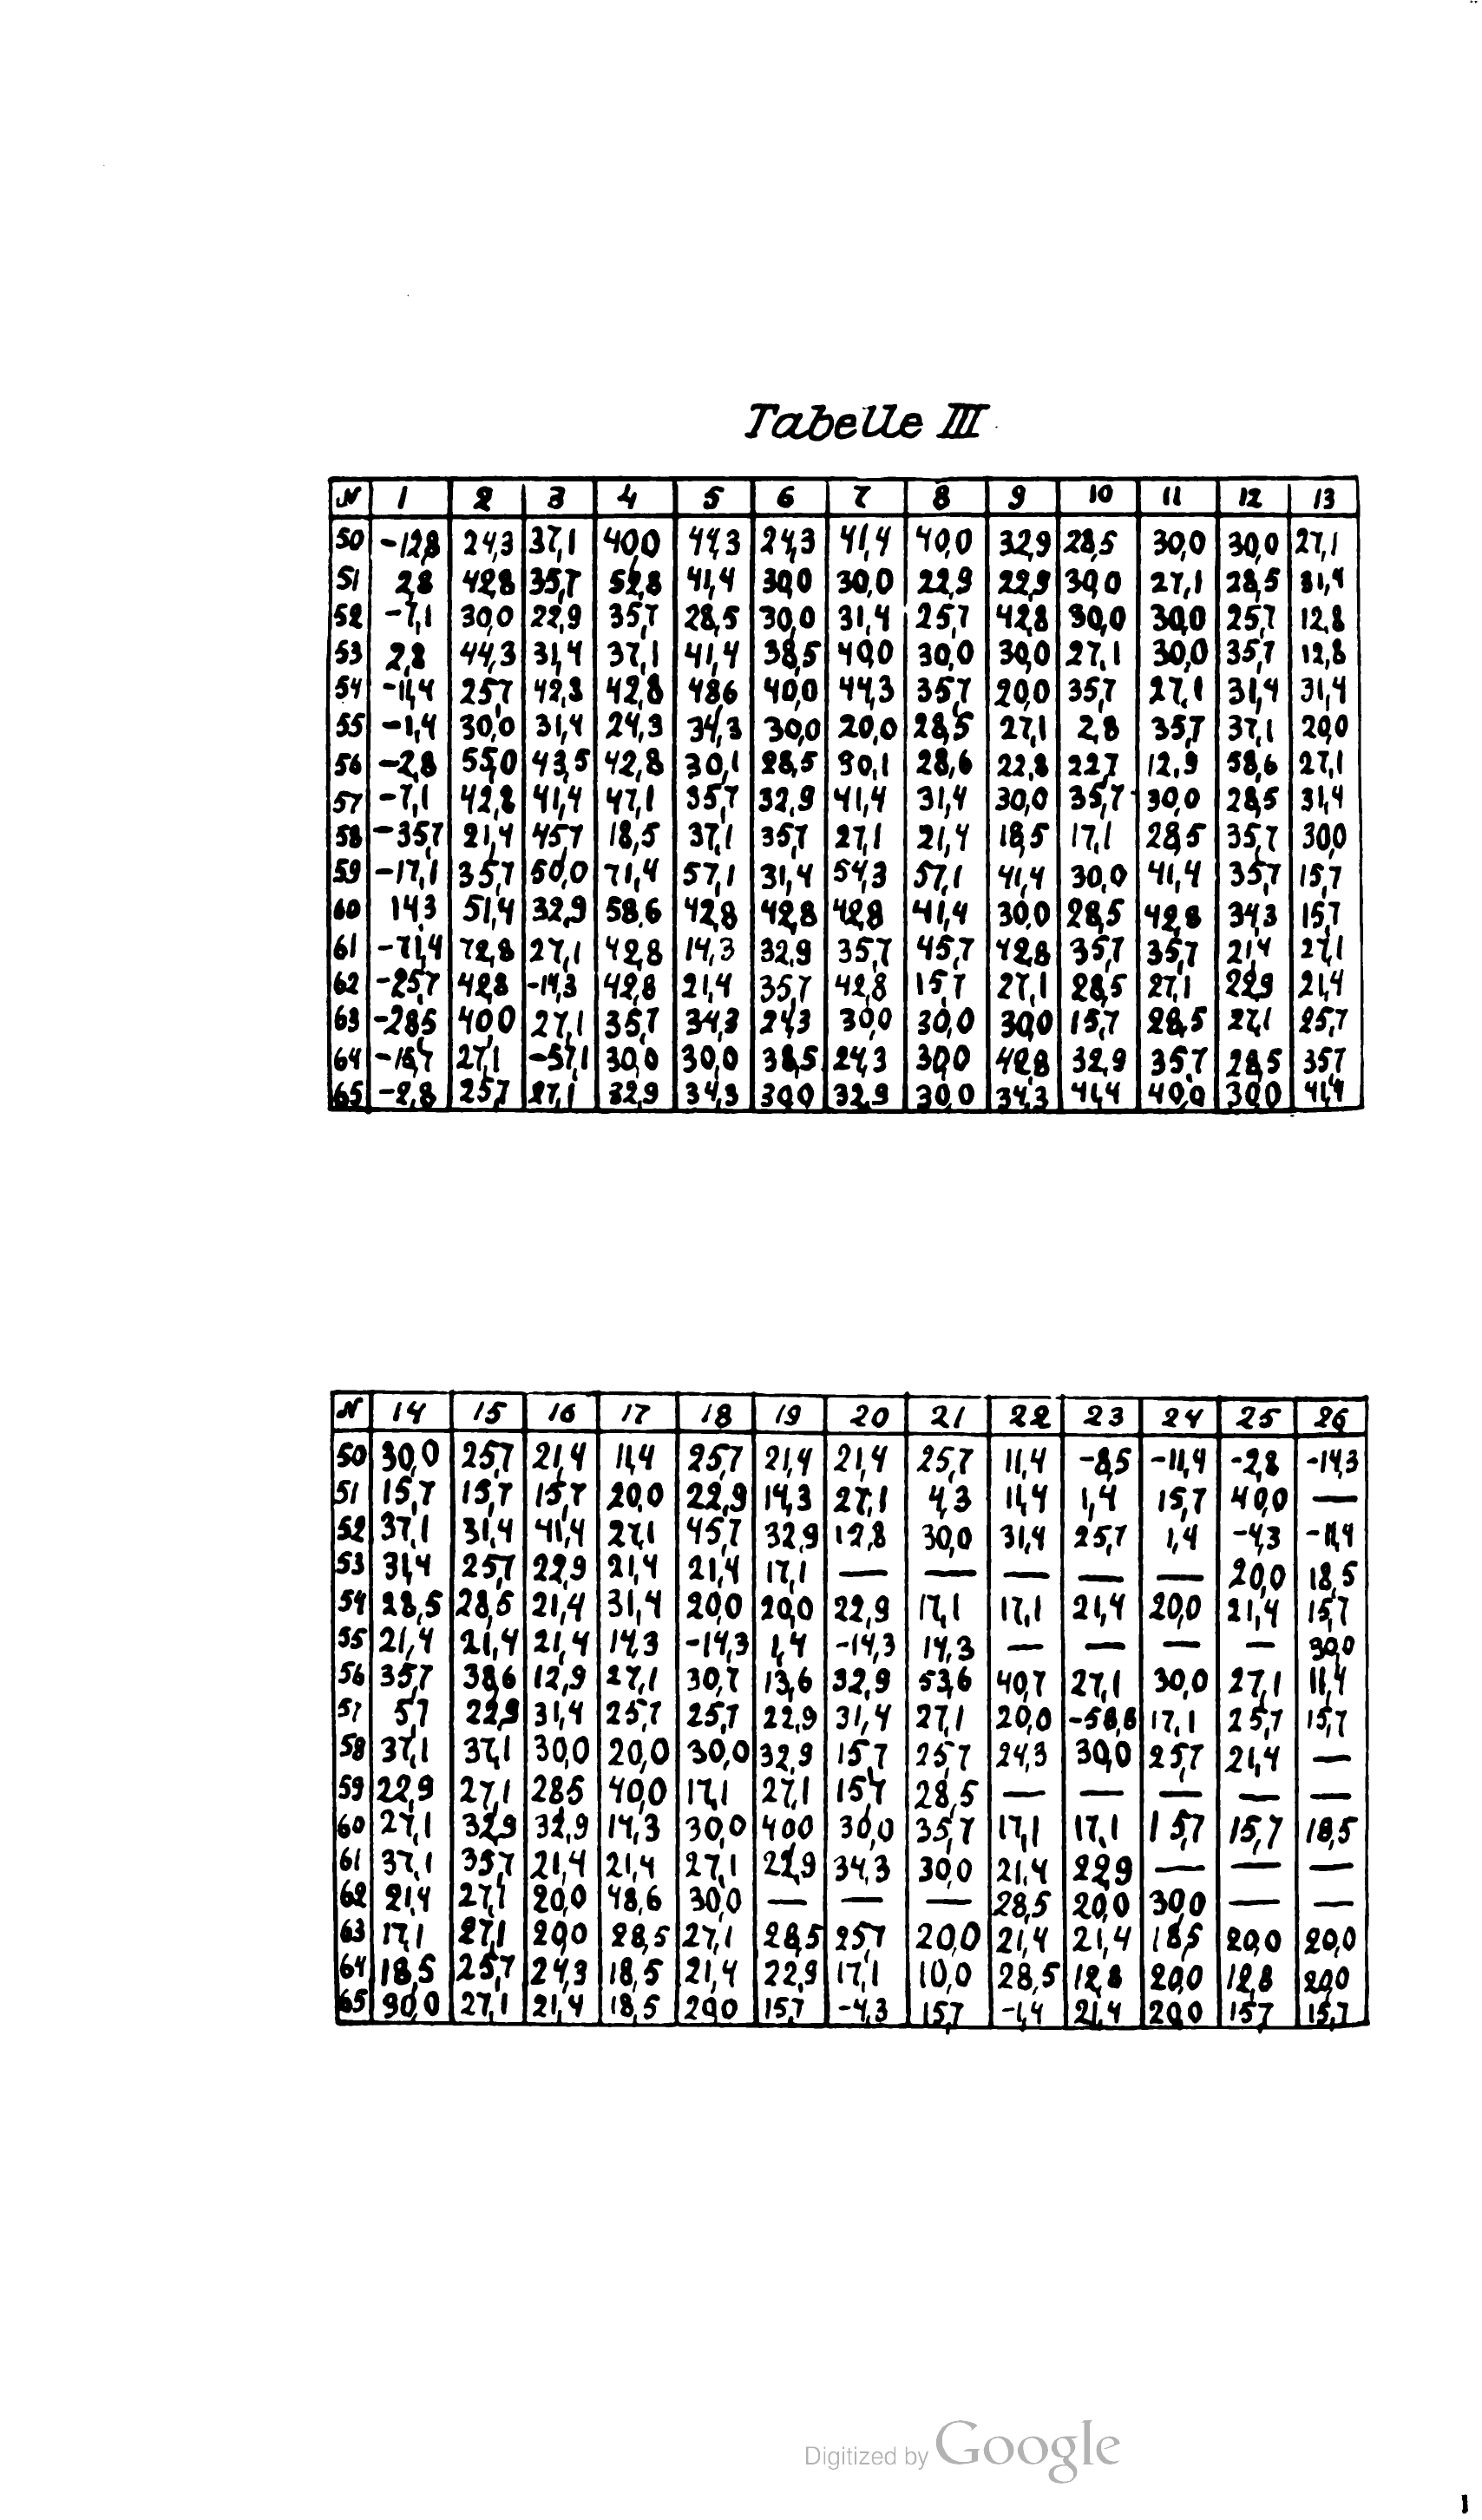 Tabelle III
N 1 2 3 4 5 6 7 8 9 10 11 12 13
50 -12,8 24,3 37,1 40,0 44,3 24,3 41,4 40,0 32,9 28,5 30,0 30,0 27,1
51 2,8 42,8 35,7 52,8 41,4 30,0 30,0 22,9 22,9 30,0 27,1 28,5 31,4
52 -7,1 30,0 22,9 35,7 28,5 30,0 31,4 25,7 42,8 30,0 30,0 25,7 12,8
53 2,8 44,3 31,4 37,1 41,4 38,5 40,0 30,0 30,0 27,1 30,0 35,7 12,8
54 -11,4 25,7 42,8 42,8 48,6 40,0 44,3 35,7 20,0 35,7 27,1 31,4 31,4
55 -1,4 30,0 31,4 24,3 34,3 30,0 20,0 28,5 27,1 2,8 35,7 37,1 20,0
56 -2,8 55,0 43,5 42,8 30,1 28,5 30,1 28,6 22,8 22,7 12,9 58,6 27,1
57 -7,1 42,8 41,4 47,1 35,7 32,9 41,4 31,4 30,0 35,7 30,0 28,5 31,4
58 -35,7 21,4 45,7 18,5 37,1 35,7 27,1 21,4 18,5 17,1 28,5 35,7 30,0
59 -17,1 35,7 50,0 71,4 57,1 31,4 54,3 57,1 41,4 30,0 41,4 35,7 15,7
60 14,3 51,4 32,9 58,6 42,8 42,8 42,8 41,4 30,0 28,5 42,8 34,3 15,7
61 -71,4 72,8 27,1 42,8 14,3 32,9 35,7 45,7 42,8 35,7 35,7 21,4 27,1
62 -25,7 42,8 -14,3 42,8 21,4 35,7 42,8 15,7 27,1 28,5 27,1 22,9 21,4
63 -28,5 40,0 27,1 35,7 34,3 24,3 30,0 30,0 30,0 15,7 28,5 27,1 25,7
64 -15,7 27,1 -57,1 30,0 30,0 38,5 24,3 30,0 42,8 32,9 35,7 28,5 35,7
65 -2,8 25,7 27,1 32,9 34,3 30,0 32,9 30,0 34,3 41,4 40,0 30,0 41,4
N 14 15 16 17 18 19 20 21 22 23 24 25 26
50 30,0 25,7 21,4 11,4 25,7 21,4 21,4 25,7 11,4 -8,5 -11,4 -2,8 -14,3
51 15,7 15,7 15,7 20,0 22,9 14,3 27,1 4,3 11,4 1,4 15,7 40,0 —
52 37,1 31,4 41,4 27,1 45,7 32,9 12,8 30,0 31,4 25,7 1,4 -4,3 -11,4
53 31,4 25,7 22,9 21,4 21,4 17,1 — — — — — 20,0 18,5
54 28,5 28,5 21,4 31,4 20,0 20,0 22,9 17,1 17,1 21,4 20,0 21,4 15,7
55 21,4 21,4 21,4 14,3 -14,3 1,4 -14,3 14,3 — — — — 30,0
56 35,7 38,6 12,9 27,1 30,7 13,6 32,9 53,6 40,7 27,1 30,0 27,1 11,4
57 5,7 22,9 31,4 25,7 25,7 22,9 31,4 27,1 20,0 -58,8 17,1 25,7 15,7
58 37,1 37,1 30,0 20,0 30,0 32,9 15,7 25,7 24,3 30,0 25,7 21,4 —
59 22,9 27,1 28,5 40,0 17,1 27,1 15,7 28,5 — — — — —
60 27,1 32,9 32,9 14,3 30,0 40,0 30,0 35,7 17,1 17,1 15,7 15,7 18,5
61 37,1 35,7 21,4 21,4 27,1 22,9 34,3 30,0 21,4 22,9 — — —
62 21,4 27,1 20,0 48,6 30,0 — — — 28,5 20,0 30,0 — —
63 17,1 27,1 20,0 28,5 27,1 28,5 25,7 20,0 21,4 21,4 18,5 20,0 20,0
64 18,5 25,7 24,3 18,5 21,4 22,9 17,1 10,0 28,5 12,8 20,0 12,8 20,0
65 30,0 27,1 21,4 18,5 20,0 15,7 -4,3 15,7 -1,4 21,4 20,0 15,7 15,7
Digitized by Google